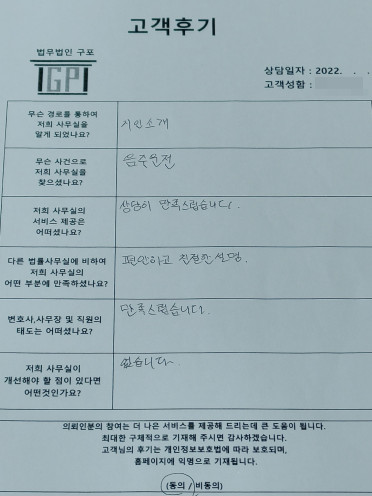 고객후기
법무법인 구포
IGPI
상담일자 : 2022. . .
고객성함 :
무슨 경로를 통하여
저희 사무실을
알게 되었나요?
지인소개
무슨 사건으로
저희 사무실을
찾으셨나요?
음주운전
저희 사무실의
서비스 제공은
어떠셨나요?
상담이 만족스럽습니다.
다른 법률사무실에 비하여
저희 사무실의
어떤 부분에 만족하셨나요?
편안하고 친절한 설명.
변호사,사무장 및 직원의
태도는 어떠셨나요?
만족스럽습니다.
저희 사무실이
개선해야 할 점이 있다면
어떤것인가요?
없습니다
의뢰인분의 참여는 더 나은 서비스를 제공해 드리는데 큰 도움이 됩니다.
최대한 구체적으로 기재해 주시면 감사하겠습니다.
고객님의 후기는 개인정보보호법에 따라 보호되며,
홈페이지에 익명으로 기재됩니다.
(동의 / 비동의)